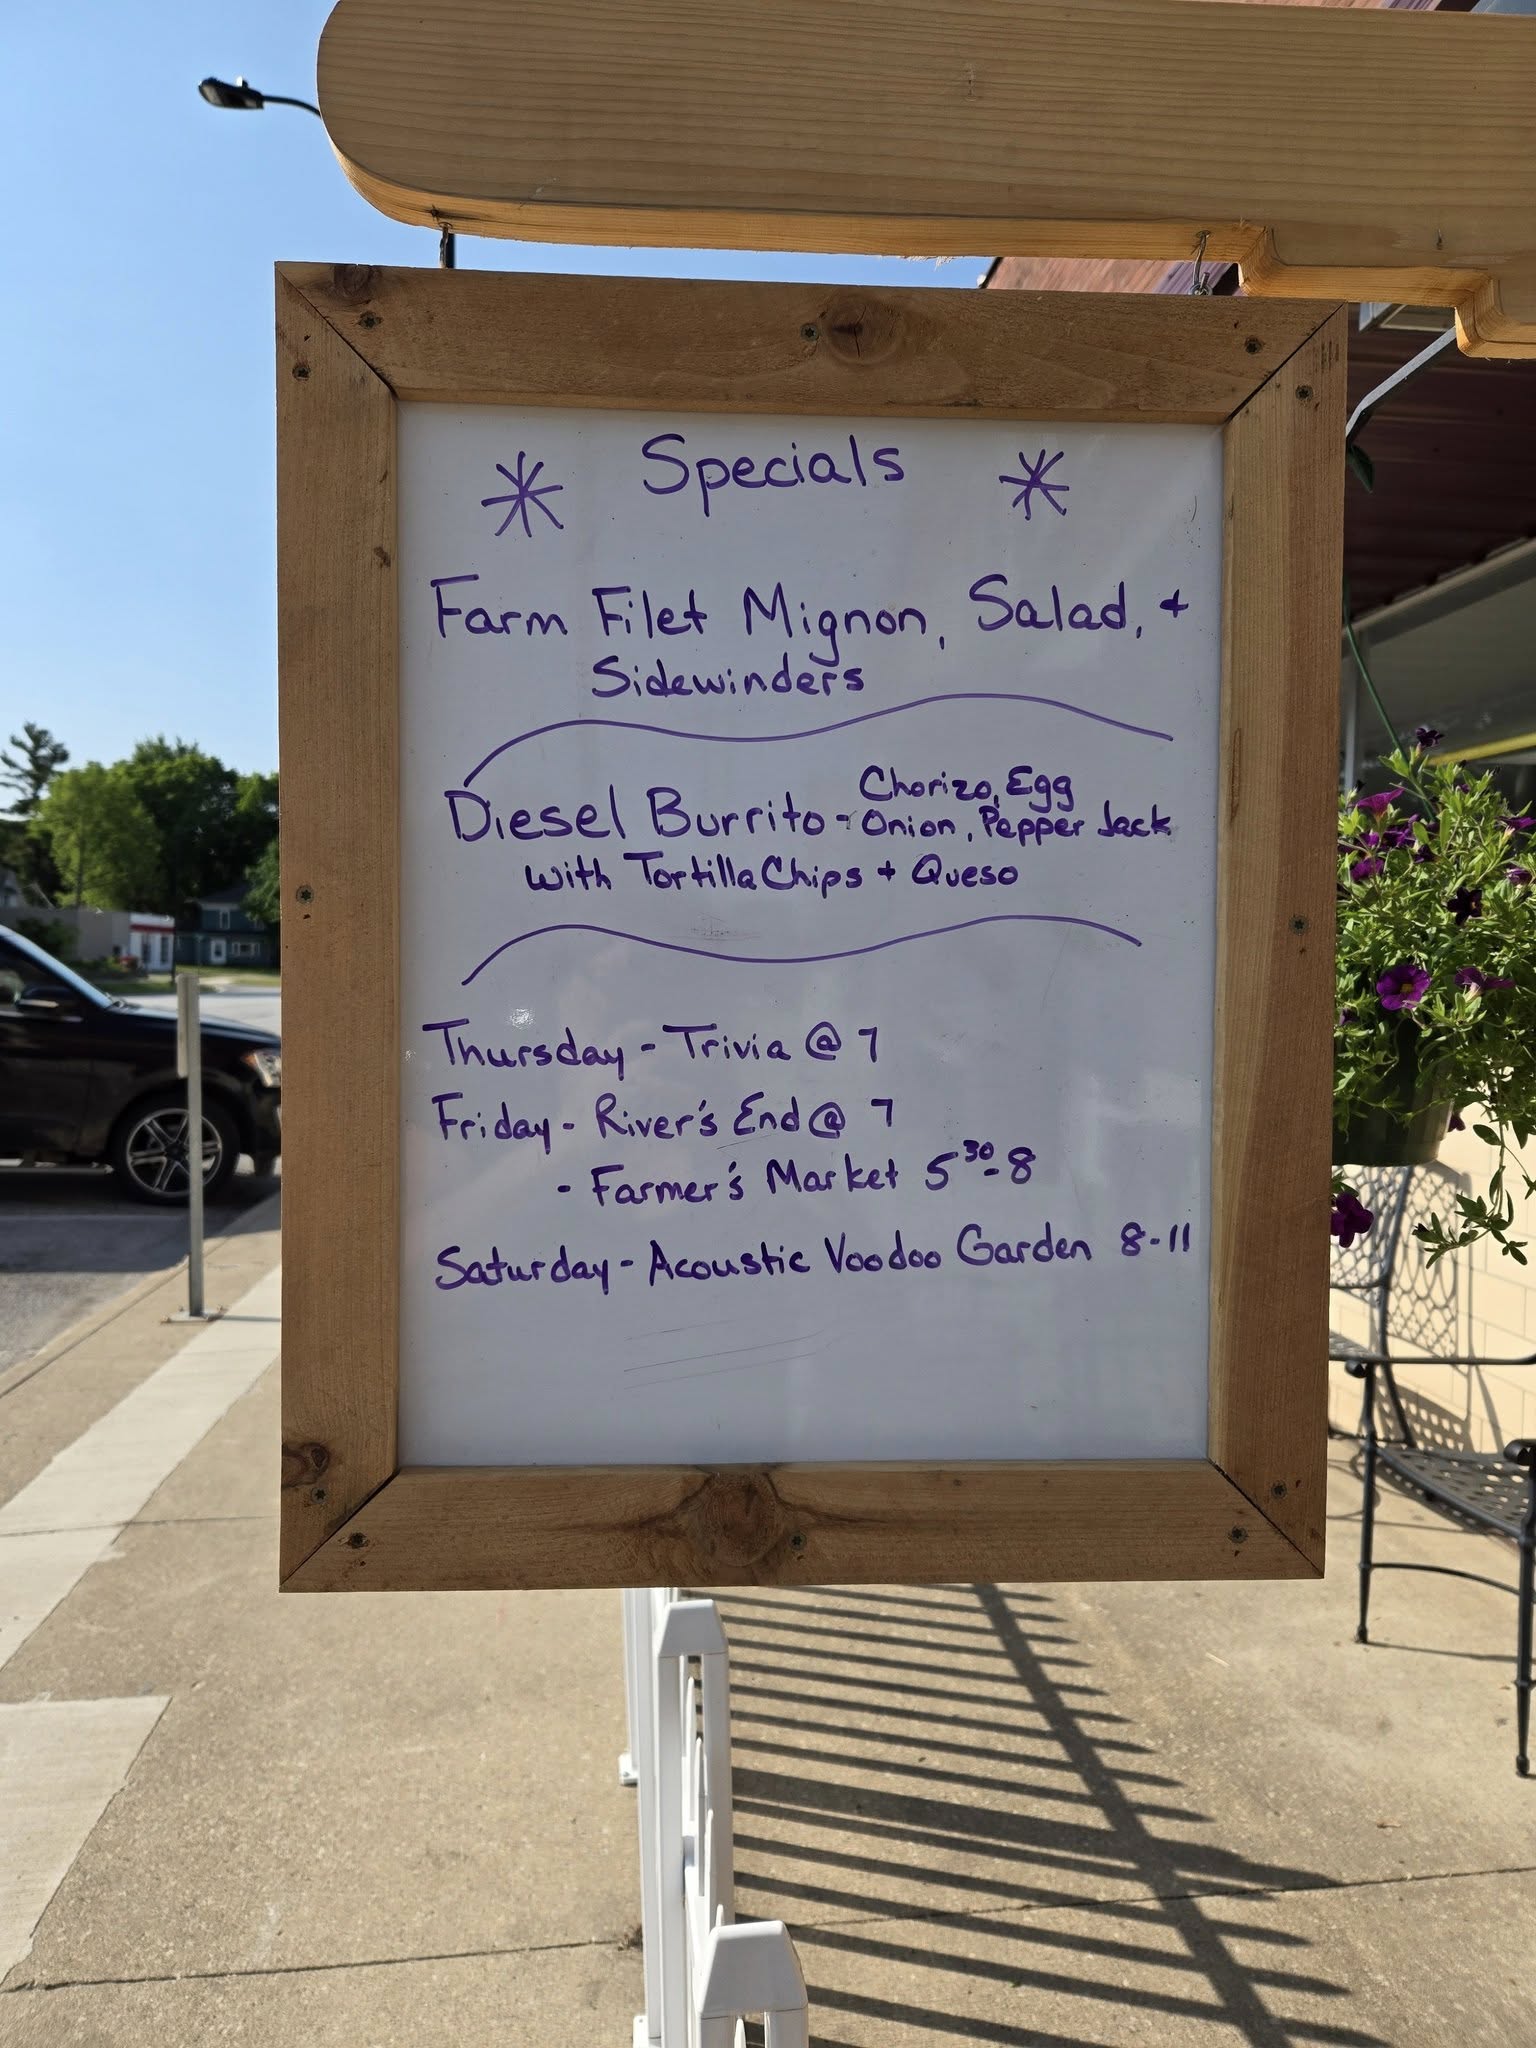 Specials
Farm Filet Mignon, Salad, +
Sidewinders
Diesel Burrito - Chorizo, Egg
Onion, Pepper Jack
with Tortilla Chips + Queso
Thursday - Trivia @ 7
Friday - River's End @ 7
- Farmer's Market 5 30 - 8
Saturday - Acoustic Voodoo Garden 8-11